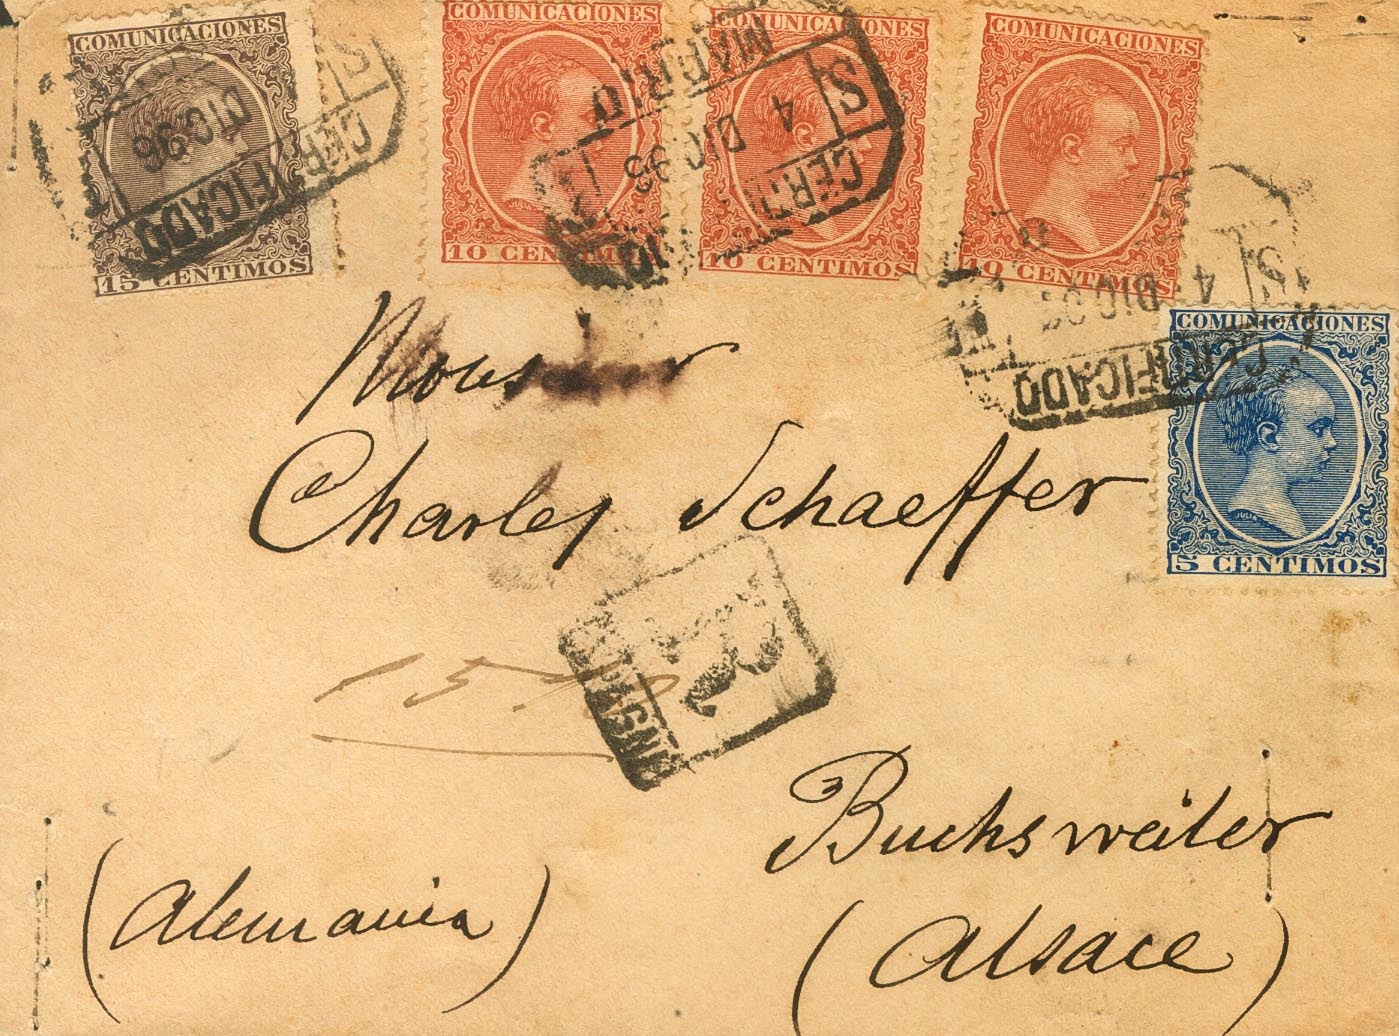 COMUNICACIONES COMUNICACIONES COMUNICACIONES COMUNICACIONES
15 CENTIMOS 10 CENTIMOS 10 CENTIMOS 10 CENTIMOS
CERTIFICADO
DIC 96
MADRID
4 DIC 96
CERTI
S
4 DIC 9
S
CERTIFICADO
COMUNICACIONES
JULIA
5 CENTIMOS
Monsieur
Charles Schaeffer
15
Buchsweiler
(Alemania)
(Alsace)